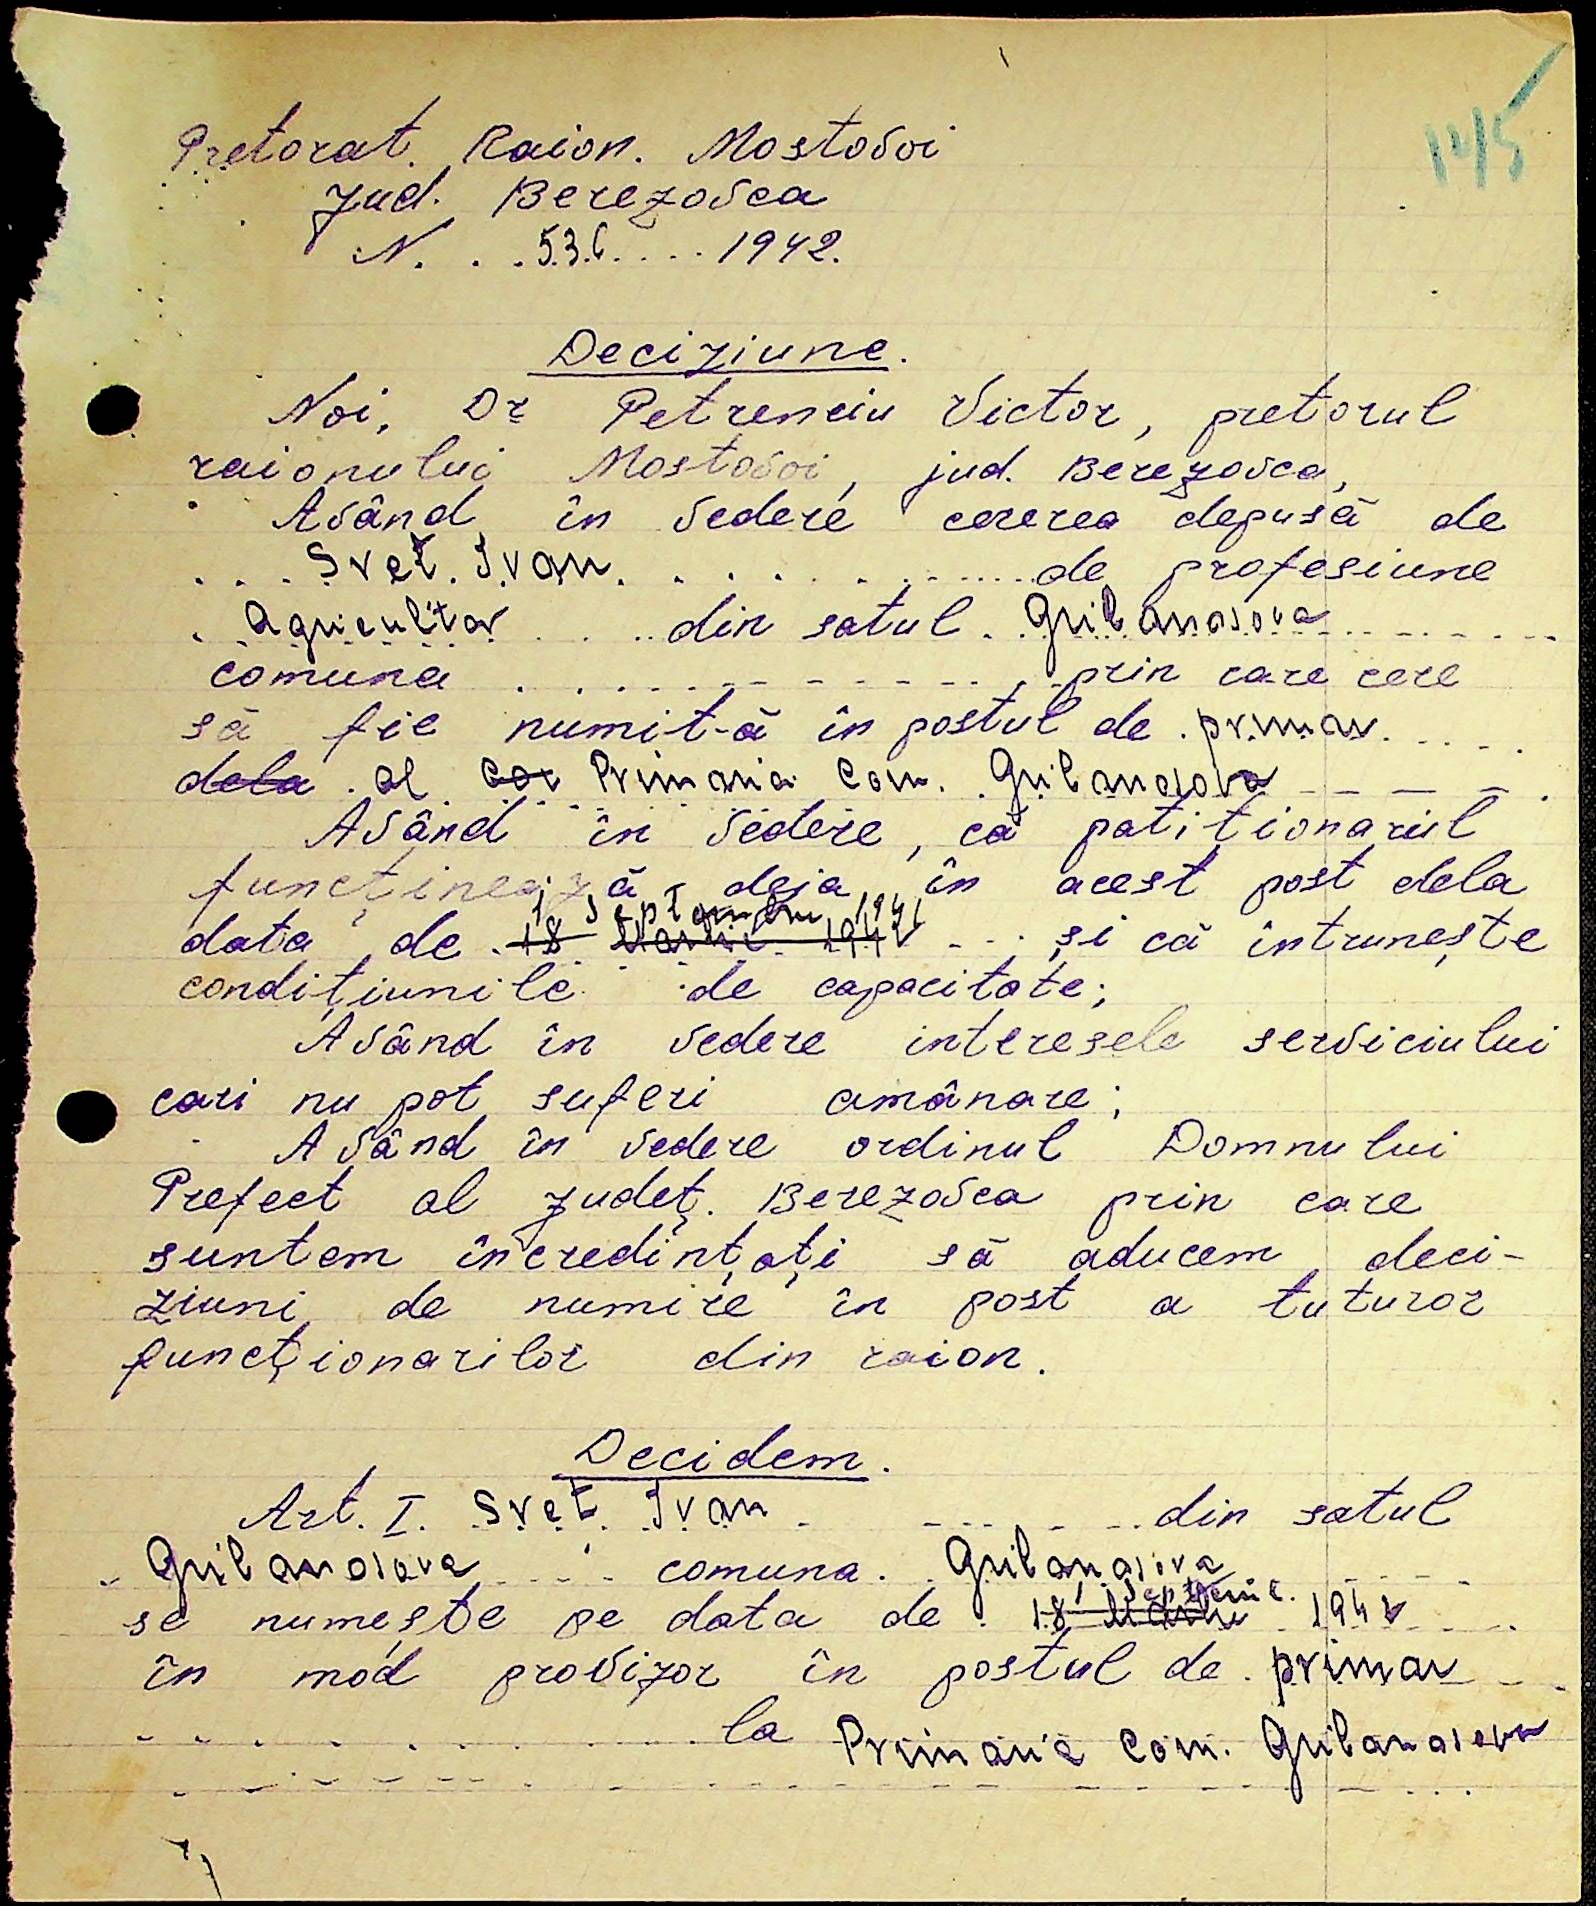 145
Pretorat. Raion. Mostovoi
Jud. Berezovca
N. . . 536 . . . . 1942.
Deciziune.
Noi, Dr Petrenciu Victor, pretorul
raionului Mostovoi, jud. Berezovca,
Având în vedere cererea depusă de
. . . Svet. Ivan . . . . . . . . . . de profesiune
. agricultor . . . . din satul . Gribanosova . . . . .
comuna . . . . . . . . . . . . . prin care cere
să fie numit-ă în postul de . primar . . . . .
dela . al cor Primaria Com. Gribanosova
Având în vedere, că patiționarul
funcținează deja în acest post dela
1 Septembrie 1941
data de . 18 Martie 1942 . . . și că întrunește
condițiunile de capacitate;
Având în vedere interesele serviciului
cari nu pot suferi amânare;
Având în vedere ordinul Domnului
Prefect al județ. Berezovca prin care
suntem încredințați să aducem deci-
ziuni de numire în post a tuturor
funcționarilor din raion.
Decidem.
Art. I. Svet. Ivan . . . . . . din satul
. Gribanosova . . . . comuna . . Gribanosova
1 Septemie.
se numește pe data de . 18 Martie 1941 . . . .
în mod provizor în postul de . primar . . .
. . . . . . . . . . . la Primaria Com. Gribanosova